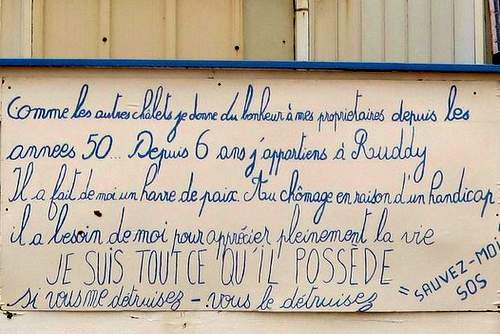 Comme les autres châlets je donne du bonheur à mes propriétaires depuis les
annees 50... Depuis 6 ans j'appartiens à Ruddy
Il a fait de moi un havre de paix. Au chômage en raison d'un handicap
il a besoin de moi pour apprécier pleinement la vie
JE SUIS TOUT CE QU'IL POSSÈDE
si vous me détruisez - vous le détruisez
= SAUVEZ-MOI
SOS